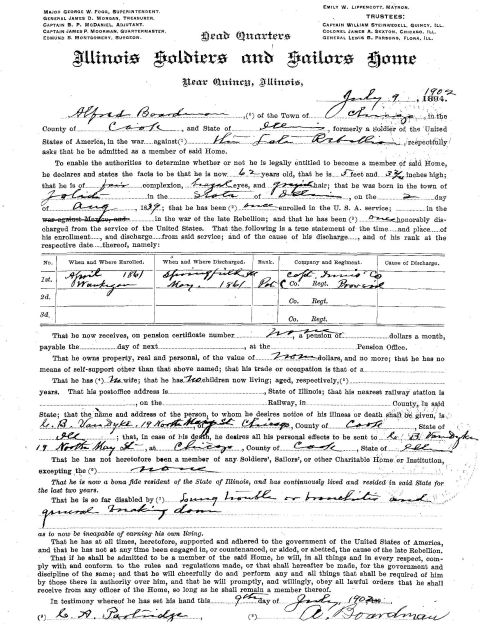 MAJOR GEORGE W. FOGG, SUPERINTENDENT.
GENERAL JAMES D. MORGAN, TREASURER.
CAPTAIN B. P. McDANIEL, ADJUTANT.
CAPTAIN JAMES P. MOORMAN, QUARTERMASTER.
EDMUND B. MONTGOMERY, SURGEON.
EMILY W. LIPPENCOTT, MATRON.
TRUSTEES:
CAPTAIN WILLIAM STEINWEDELL, QUINCY, ILL.
COLONEL JAMES A. SEXTON, CHICAGO, ILL.
GENERAL LEWIS B. PARSONS, FLORA, ILL.
Head Quarters
Illinois Soldiers and Sailors Home
Near Quincy, Illinois,
July 9 1902 1894.
Alfred Boardman, (¹) of the Town of Chicago, in the
County of Cook, and State of Ill, formerly a Soldier of the United
States of America, in the war against (²) the Late Rebellion, respectfully
asks that he be admitted as a member of said Home.
To enable the authorities to determine whether or not he is legally entitled to become a member of said Home,
he declares and states the facts to be that he is now 62 years old, that he is 5 feet and 3¾ inches high;
that he is of fair complexion, hazel eyes, and grayish hair; that he was born in the town of
Joliet in the State of Illinois, on the 2 day
of Aug, 1839; that he has been (³) once enrolled in the U. S. A. service; in the
war against Mexico, and in the war of the late Rebellion; and that he has been (³) once honorably dis-
charged from the service of the United States. That the following is a true statement of the time and place of
his enrollment, and discharge from said service; and of the cause of his discharge, and of his rank at the
respective date thereof, namely:
No. When and Where Enrolled. When and Where Discharged. Rank. Company and Regiment. Cause of Discharge.
1st. April 1861 Waukegan Springfield Ill May. 1861 Pvt Capt. Co. Regt.
2d. Co. Regt.
3d. Co. Regt.
That he now receives, on pension certificate number none, a pension of dollars a month,
payable the day of next, at the Pension Office.
That he owns property, real and personal, of the value of none dollars, and no more; that he has no
means of self-support other than that above named; that his trade or occupation is that of a
That he has (⁴) no wife; that he has no children now living; aged, respectively, (⁵)
years. That his postoffice address is , State of Illinois; that his nearest railway station is
, on the Railway, in County, in said
State; that the name and address of the person, to whom he desires notice of his illness or death shall be given, is
L. B. VanDyke, 19 North May St Chicago, County of Cook, State of
Ill; that, in case of his death, he desires all his personal effects to be sent to L. B. VanDyke
19 North May St, at Chicago, County of Cook, State of Ill
That he has not heretofore been a member of any Soldiers', Sailors', or other Charitable Home or Institution,
excepting the (⁶) none
That he is now a bona fide resident of the State of Illinois, and has continuously lived and resided in said State for
the last two years.
That he is so far disabled by (⁷) Lung trouble or bronchitis and
general breaking down
as to now be incapable of earning his own living.
That he has at all times, heretofore, supported and adhered to the government of the United States of America,
and that he has not at any time been engaged in, or countenanced, or aided, or abetted, the cause of the late Rebellion.
That if he shall be admitted to be a member of the said Home, he will, in all things and in every respect, com-
ply with and conform to the rules and regulations made, or that shall hereafter be made, for the government and
discipline of the same; and that he will cheerfully do and perform any and all things that shall be required of him
by those there in authority over him, and that he will promptly, and willingly, obey all lawful orders that he shall
receive from any officer of the Home, so long as he shall remain a member thereof.
In testimony whereof he has set his hand this 9th day of July 1902
(⁸) L. A. Partridge (⁹) A. Boardman